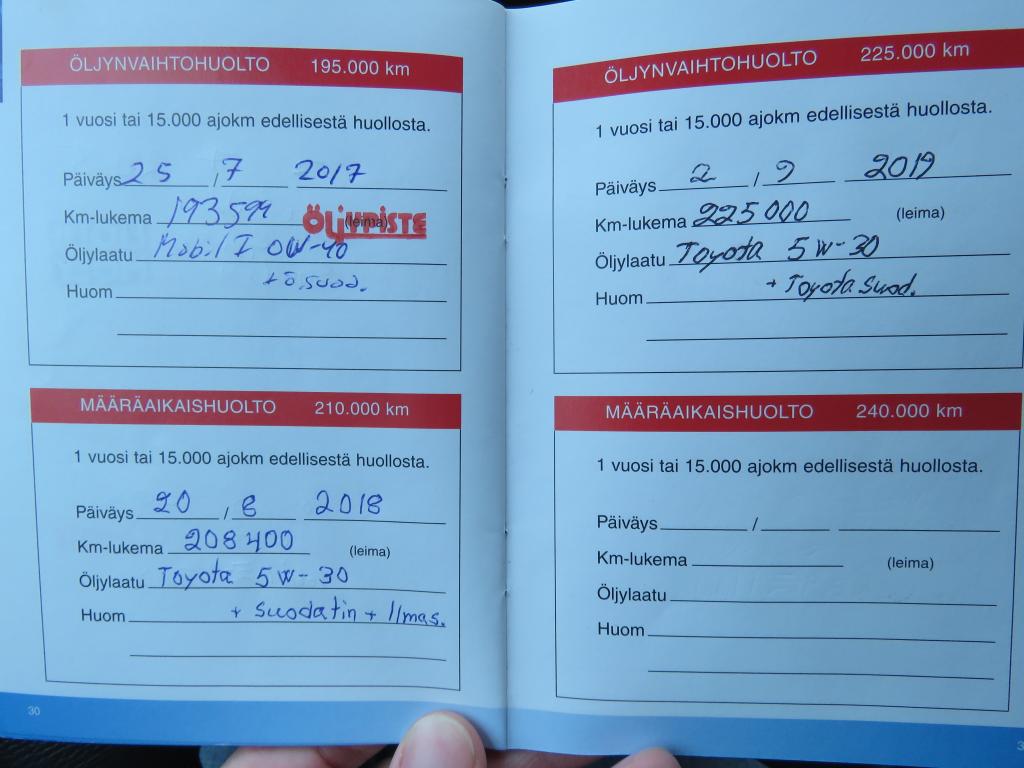 ÖLJYNVAIHTOHUOLTO 195.000 km
1 vuosi tai 15.000 ajokm edellisestä huollosta.
Päiväys 25 / 7 2017
Km-lukema 193599 (leima) ÖLJYPISTE
Öljylaatu Mobil 1 0W-40
+ ö.suod.
Huom
MÄÄRÄAIKAISHUOLTO 210.000 km
1 vuosi tai 15.000 ajokm edellisestä huollosta.
Päiväys 20 / 8 2018
Km-lukema 208400 (leima)
Öljylaatu Toyota 5W-30
Huom + Suodatin + Ilmas.
30
ÖLJYNVAIHTOHUOLTO 225.000 km
1 vuosi tai 15.000 ajokm edellisestä huollosta.
Päiväys 2 / 9 2019
Km-lukema 225000 (leima)
Öljylaatu Toyota 5W-30
Huom + Toyota Suod.
MÄÄRÄAIKAISHUOLTO 240.000 km
1 vuosi tai 15.000 ajokm edellisestä huollosta.
Päiväys /
Km-lukema (leima)
Öljylaatu
Huom